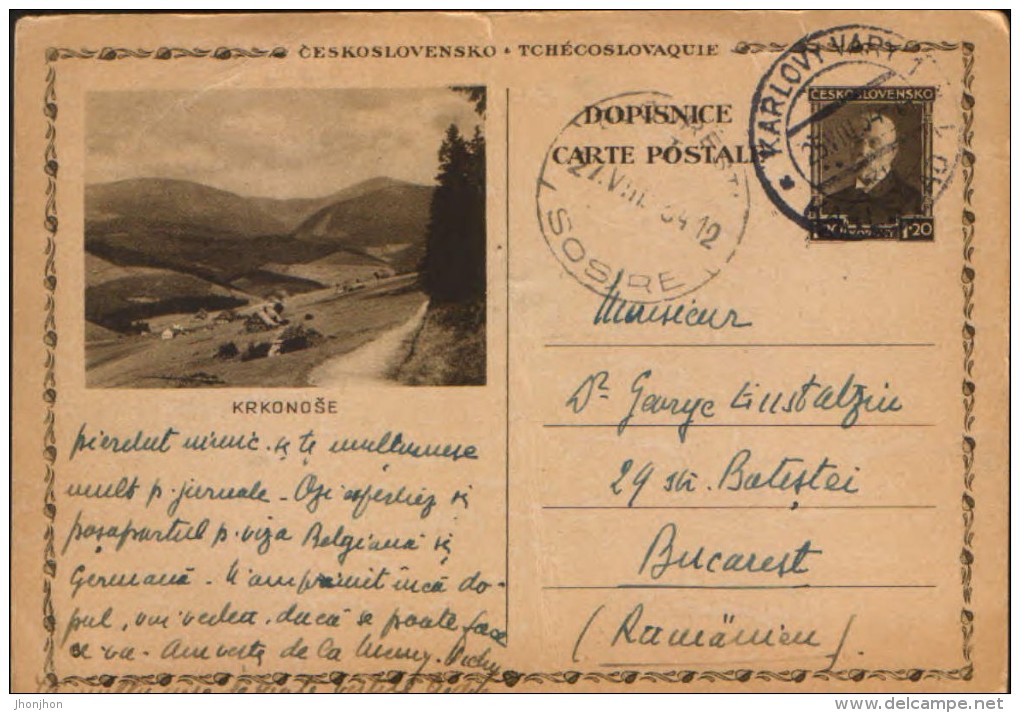 ČESKOSLOVENSKO • TCHÉCOSLOVAQUIE
DOPISNICE
CARTE POSTALE
KARLOVY VARY 1
ČESKOSLOVENSKO
1·20
27.VIII. 34 12
SOSIRE
KRKONOŠE
pierdut nimic. și te mulțumesc
mult p. jurnale - Azi expediez și
pașaportul p. viza Belgiană și
Germană - N'am primit încă do-
pul, voi vedea, dacă se poate face
ce va - Am veste de la
Monsieur
Dr. George
29 str. Batiștei
Bucarest
(Rumänien).
jhonjhon
www.delcampe.net